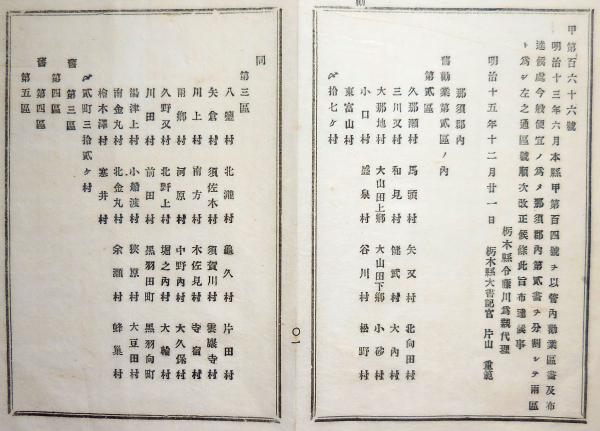 甲第百六十六號
明治十三年六月本縣甲第百四號ヲ以管內勸業區畫及布
達候處今般便宜ノ爲メ那須郡內第貳畫ヲ分割シテ兩區
ト爲シ左之通區號順次改正候條此旨布達候事
栃木縣令藤川爲親代理
明治十五年十二月廿一日　栃木縣大書記官 片山 重範
那須郡內
舊勸業第貳區ノ內
第貳區
久那瀨村 馬頭村 矢又村 北向田村
三川又村 和見村 健武村 大內村
大那地村 大山田上鄕 大山田下鄕 小砂村
小口村 盛泉村 谷川村 松野村
東富山村
〆拾七ケ村
同
第三區
八鹽村 北瀧村 龜久村 片田村
矢倉村 須佐木村 須賀川村 雲巖寺村
川上村 南方村 木佐見村 寺宿村
兩鄕村 河原村 中野內村 大久保村
久野又村 北野上村 堀之內村 大輪村
川田村 前田村 黑羽田町 黑羽向町
湯津上村 小船渡村 狹原村 大豆田村
南金丸村 北金丸村 余瀨村 蜂巢村
檜木澤村 寒井村
〆貳町三拾貳ケ村
舊第三區
第四區
舊第四區
第五區